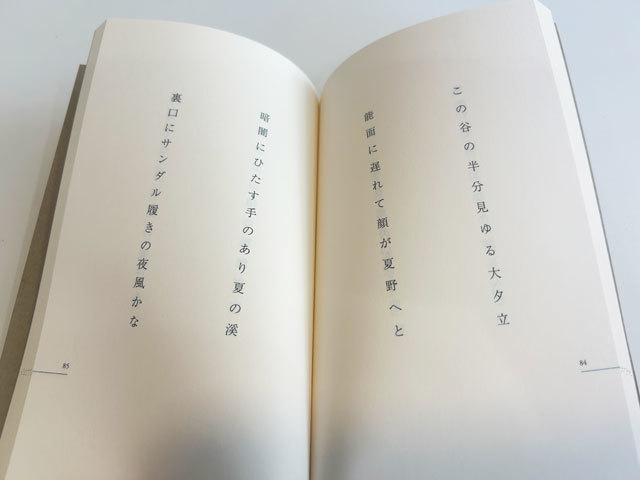 この谷の半分見ゆる大夕立
能面に遅れて顔が夏野へと
84
暗闇にひたす手のあり夏の溪
裏口にサンダル履きの夜風かな
85